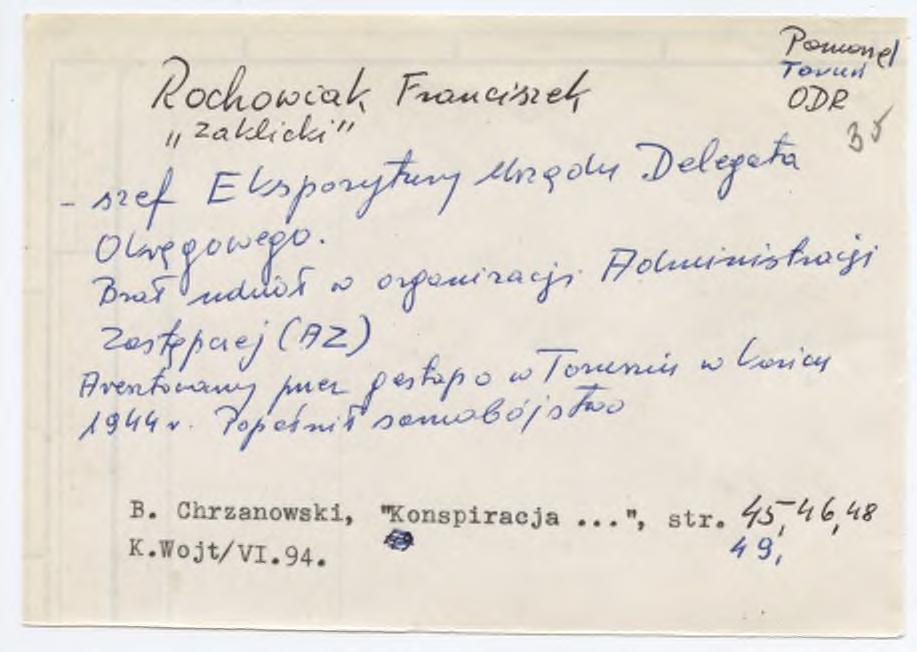 Pomorze
Toruń
ODR
35
Rochowiak Franciszek
"Zaklicki"
- szef Ekspozytury Urzędu Delegata
Okręgowego.
Brał udział w organizacji Administracji
Zastępczej (AZ)
Aresztowany przez gestapo w Toruniu w końcu
1944 r. Popełnił samobójstwo
B. Chrzanowski, "Konspiracja ...", str. 45, 46, 48
K.Wojt/VI.94. 49,